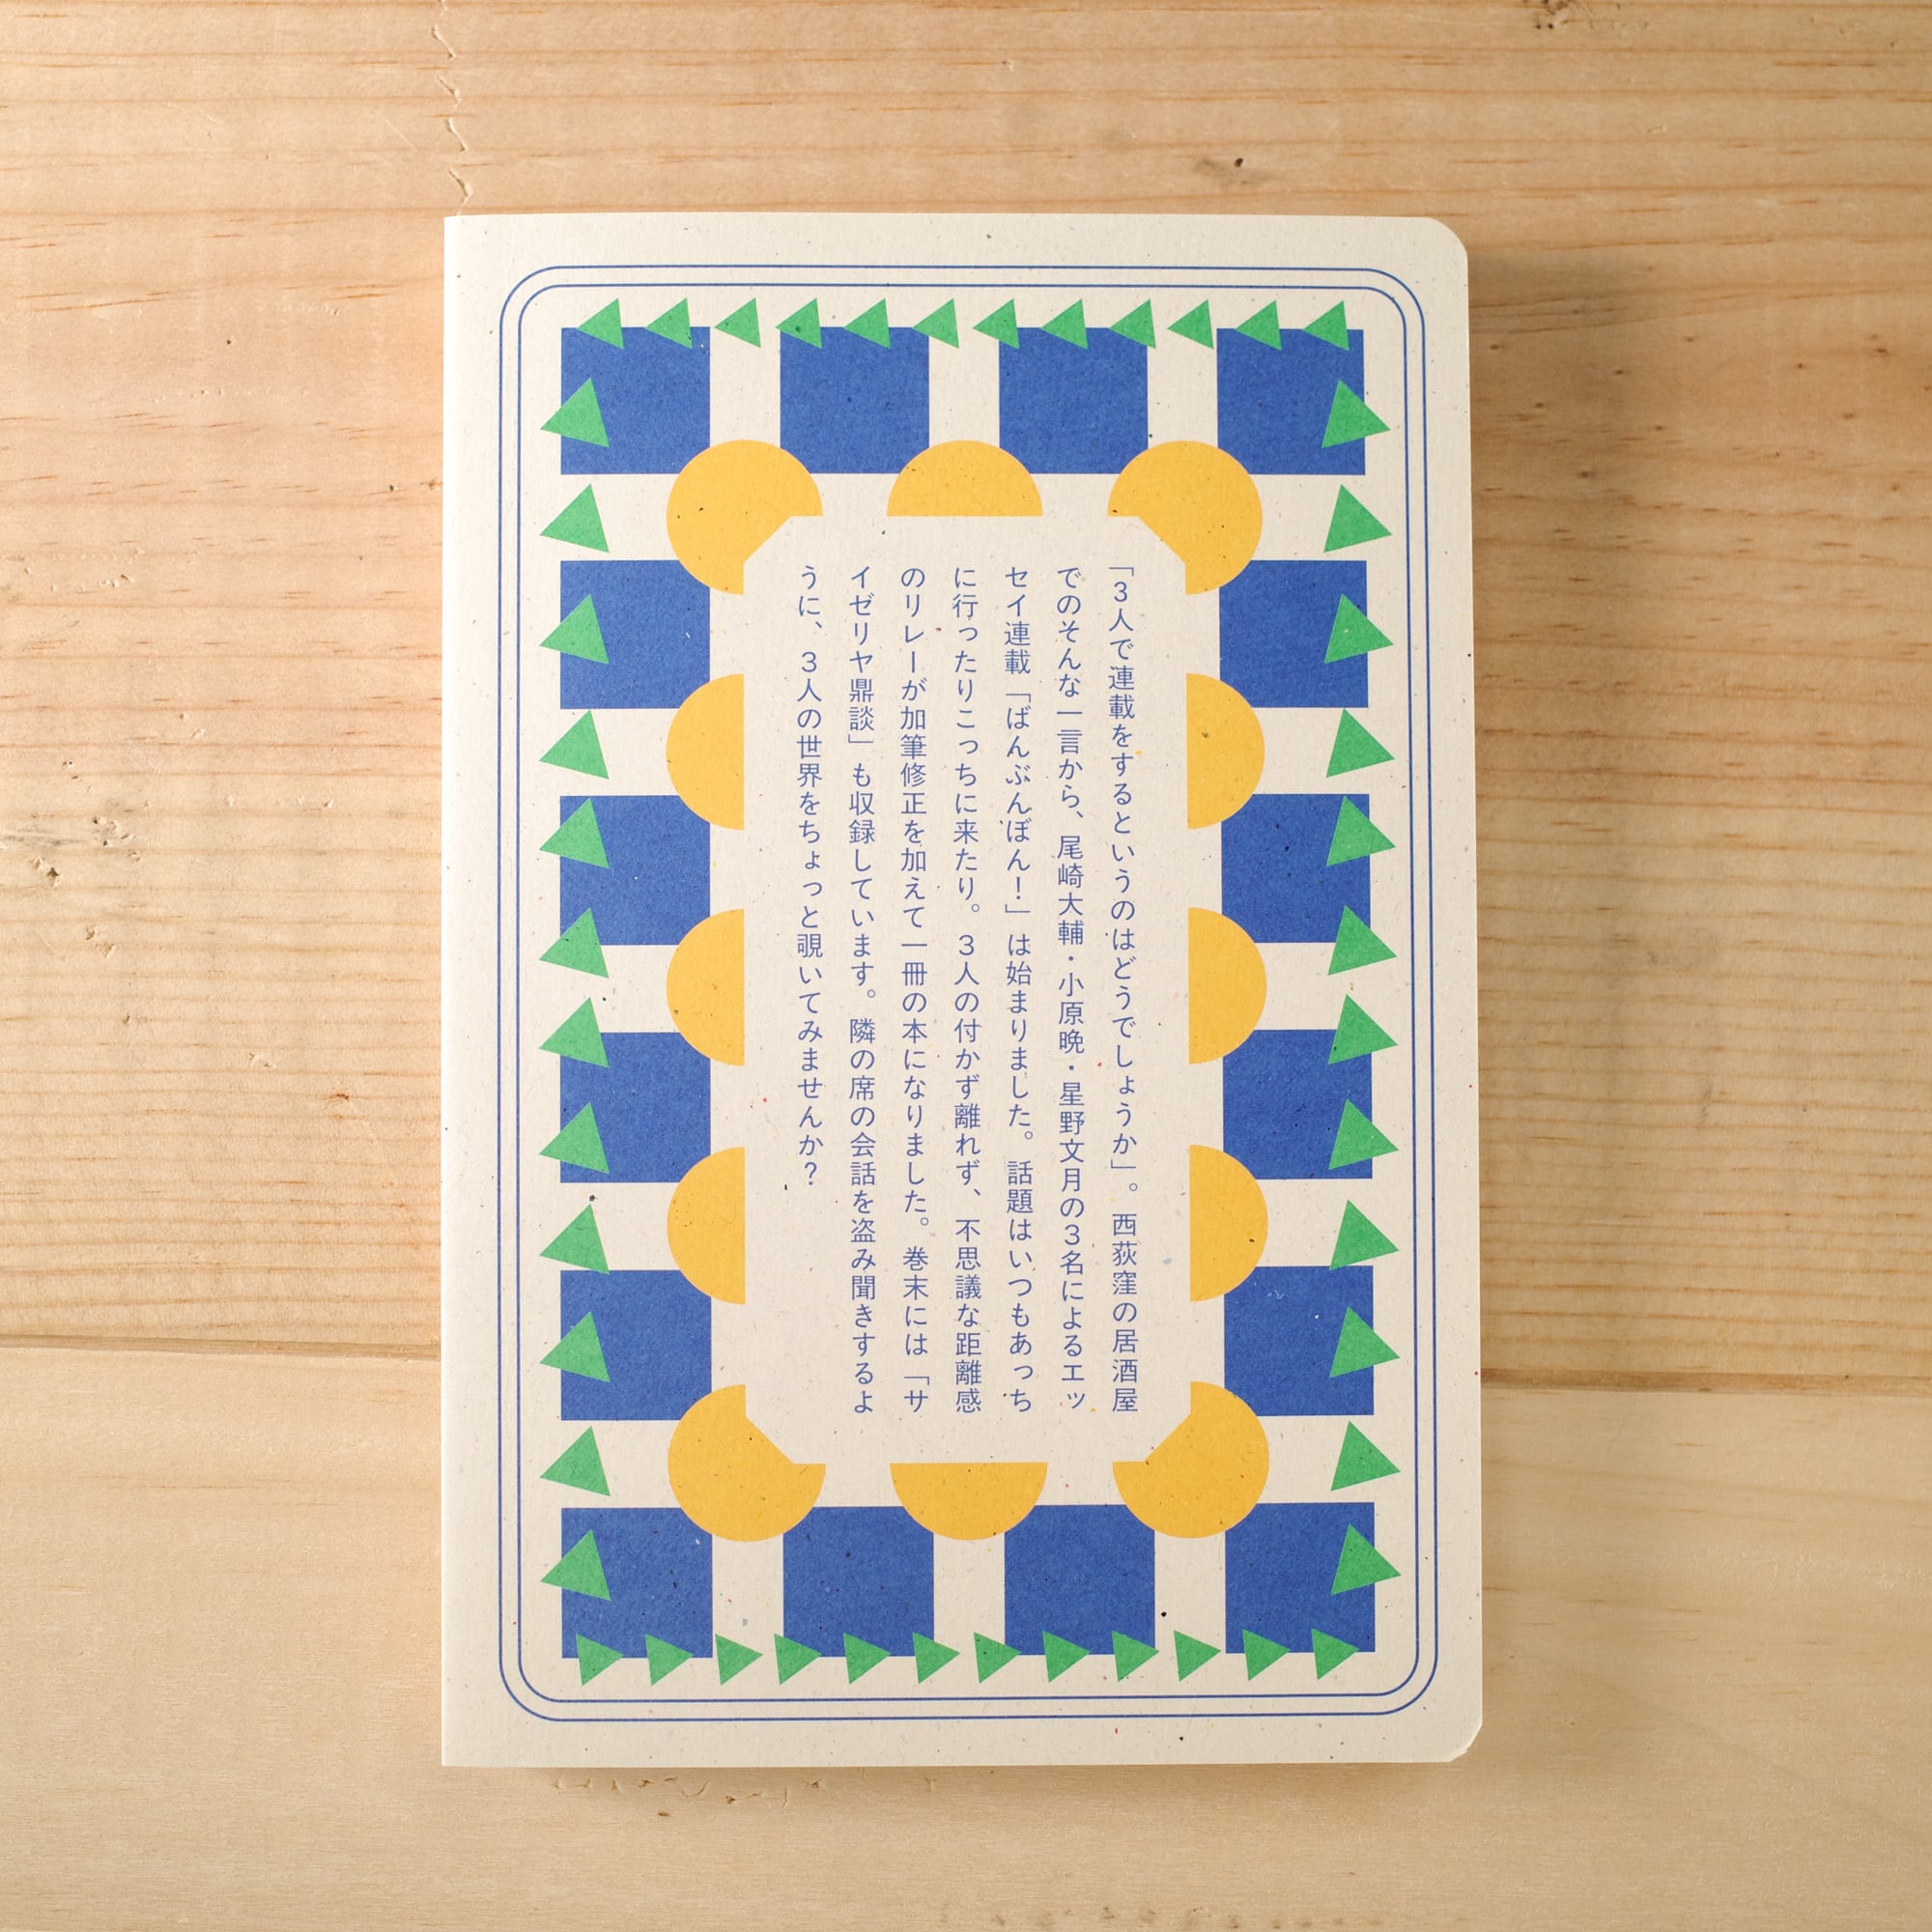 「3人で連載をするというのはどうでしょうか」。西荻窪の居酒屋
でのそんな一言から、尾崎大輔・小原晩・星野文月の3名によるエッ
セイ連載「ばんぶんぼん！」は始まりました。話題はいつもあっち
に行ったりこっちに来たり。3人の付かず離れず、不思議な距離感
のリレーが加筆修正を加えて一冊の本になりました。巻末には「サ
イゼリヤ鼎談」も収録しています。隣の席の会話を盗み聞きするよ
うに、3人の世界をちょっと覗いてみませんか？